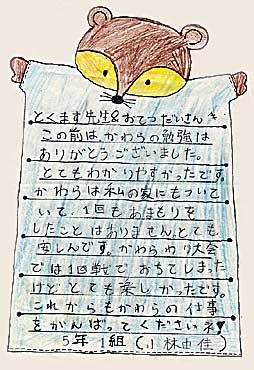 とくます先生&おてつだいさんへ
この前は、かわらの勉強は
ありがとうございました。
とてもわかりやすかったです。
かわらは私の家にもついて
いて、1回もあまもりを
したことはありません。とても
安しんです。かわらわり大会
では1回戦でおちてしまった
けどとても楽しかったです。
これからもかわらの仕事
をがんばってくださいネ
5年1組(小林由佳)